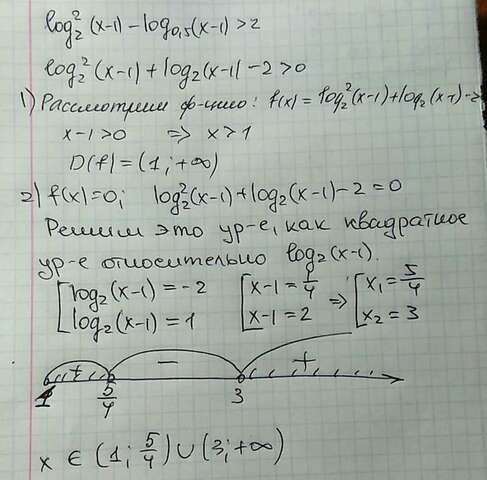 log₂²(x-1) - log₀,₅(x-1) > 2
log₂²(x-1) + log₂(x-1) - 2 > 0
1) Рассмотрим ф-цию: f(x) = log₂²(x-1) + log₂(x-1) - 2
x-1 > 0 ⇒ x > 1
D(f) = (1; +∞)
2) f(x) = 0; log₂²(x-1) + log₂(x-1) - 2 = 0
Решим это ур-е, как квадратное
ур-е относительно log₂(x-1).
[log₂(x-1) = -2 [x-1 = 1/4 ⇒ [x₁ = 5/4
[log₂(x-1) = 1 [x-1 = 2 [x₂ = 3
+ − +
1 5/4 3
x ∈ (1; 5/4) ∪ (3; +∞)